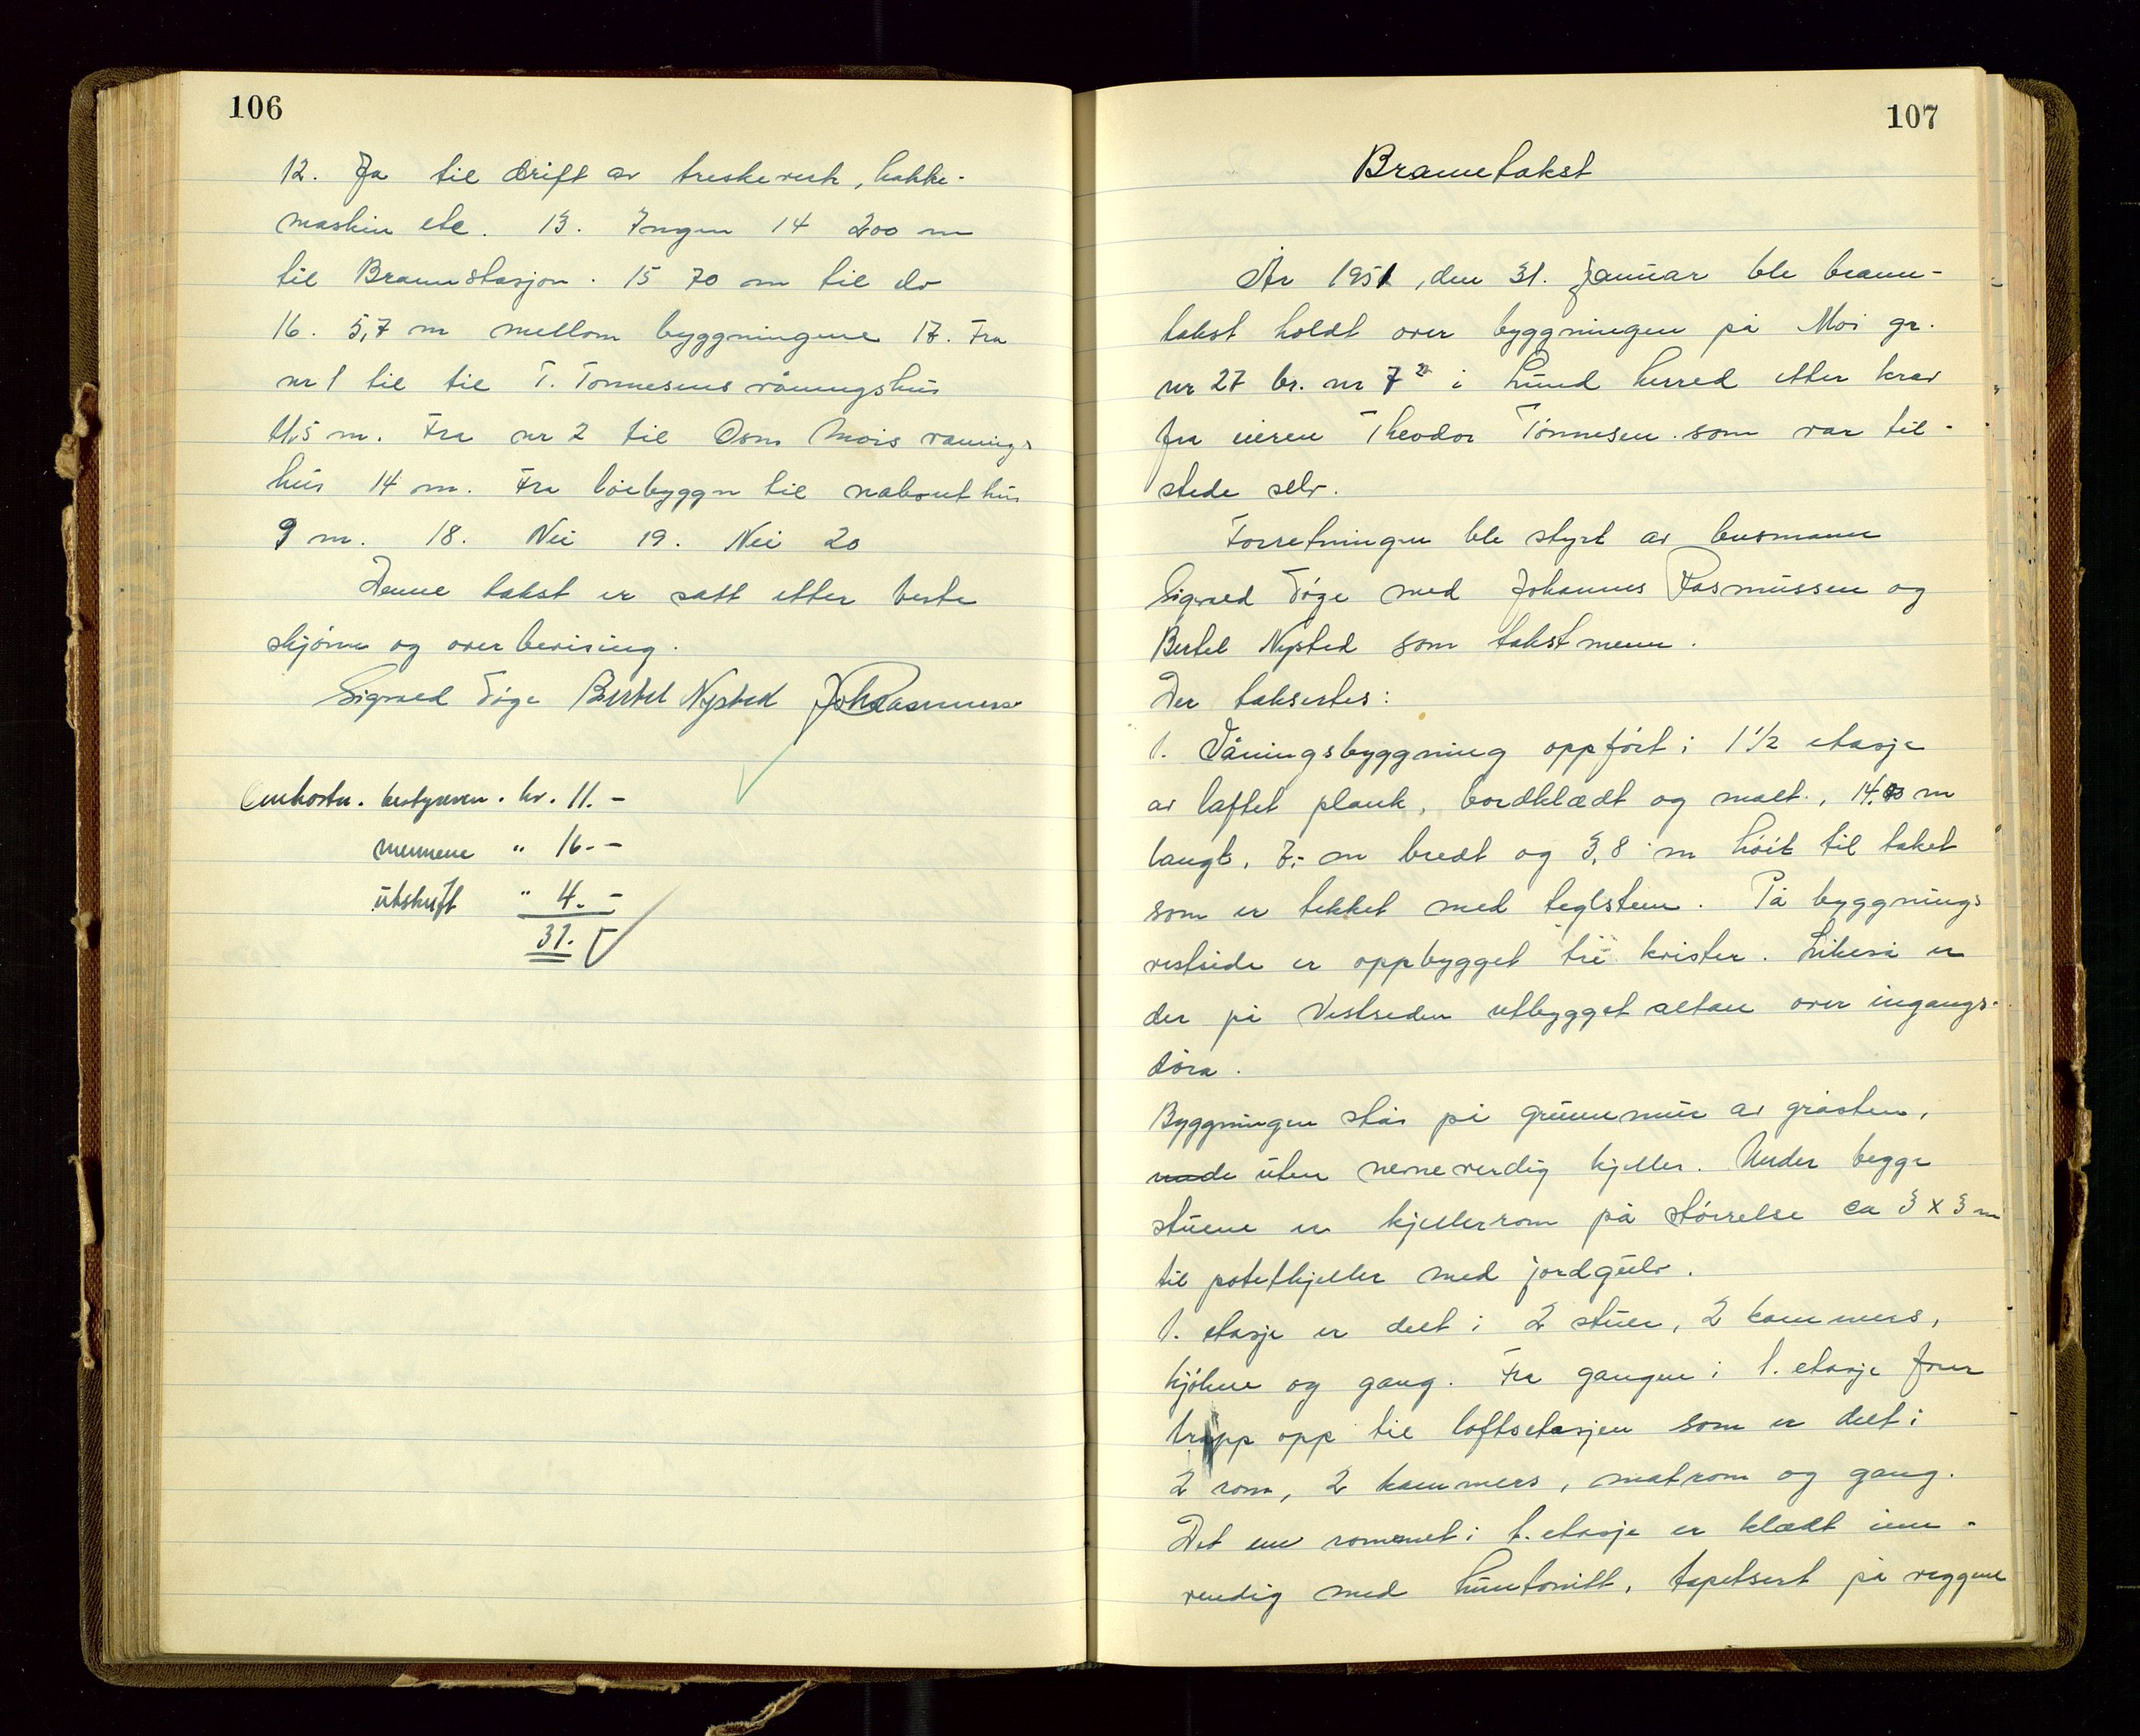 106
12. Ja til drift av treskeverk, hakke-
maskin etc. 13. Ingen 14 200 m
til Brannstasjon. 15 70 m til do
16. 5,7 m mellom byggningene 17. Fra
nr 1 til til T. Tønnesens våningshus
11,5 m. Fra nr 2 til Osm Mois vånings
hus 14 m. Fra løebyggn til nabouthus
9 m. 18. Nei 19. Nei 20
Denne takst er satt etter beste
skjønn og overbevising.
Sigvald Tøge Bertel Nysted Joh Rasmussen
Omkostn. bestyreren. kr. 11.-
mennene " 16.-
utskrift " 4.-
31.
107
Branntakst
År 1951, den 31. januar ble brann-
takst holdt over byggningen på Moi gr.
nr 27 br. nr 7 i Lund herred etter krav
fra eieren Theodor Tønnesen som var til-
stede selv.
Forretningen ble styrt av lensmann
Sigvald Tøge med Johannes Rasmussen og
Bertel Nysted som takstmenn.
Der taksertes:
1. Våningsbyggning oppført i 1 1/2 etasje
av laftet plank, bordklædt og malt., 14, m
langt, 7,- m bredt og 3,8 m høit til taket
som er tekket med teglsten. På byggnings
vestside er oppbygget tre kvister. Likeså er
der på Vestsiden utbygget altan over ingangs-
døra.
Byggningen står på grunnmur av gråsten,
uten nevneverdig kjeller. Under begge
stuene er kjellerrom på størrelse ca 3 x 3 m
til potetkjeller med jordgulv.
1. etasje er delt i 2 stuer, 2 kammers,
kjøkken og gang. Fra gangen i 1. etasje fører
trapp opp til loftsetasjen som er delt i
2 rom, 2 kammers, matrom og gang.
Det ene rommet i 1. etasje er klædt inn-
vendig med huntonitt, tapetsert på veggene